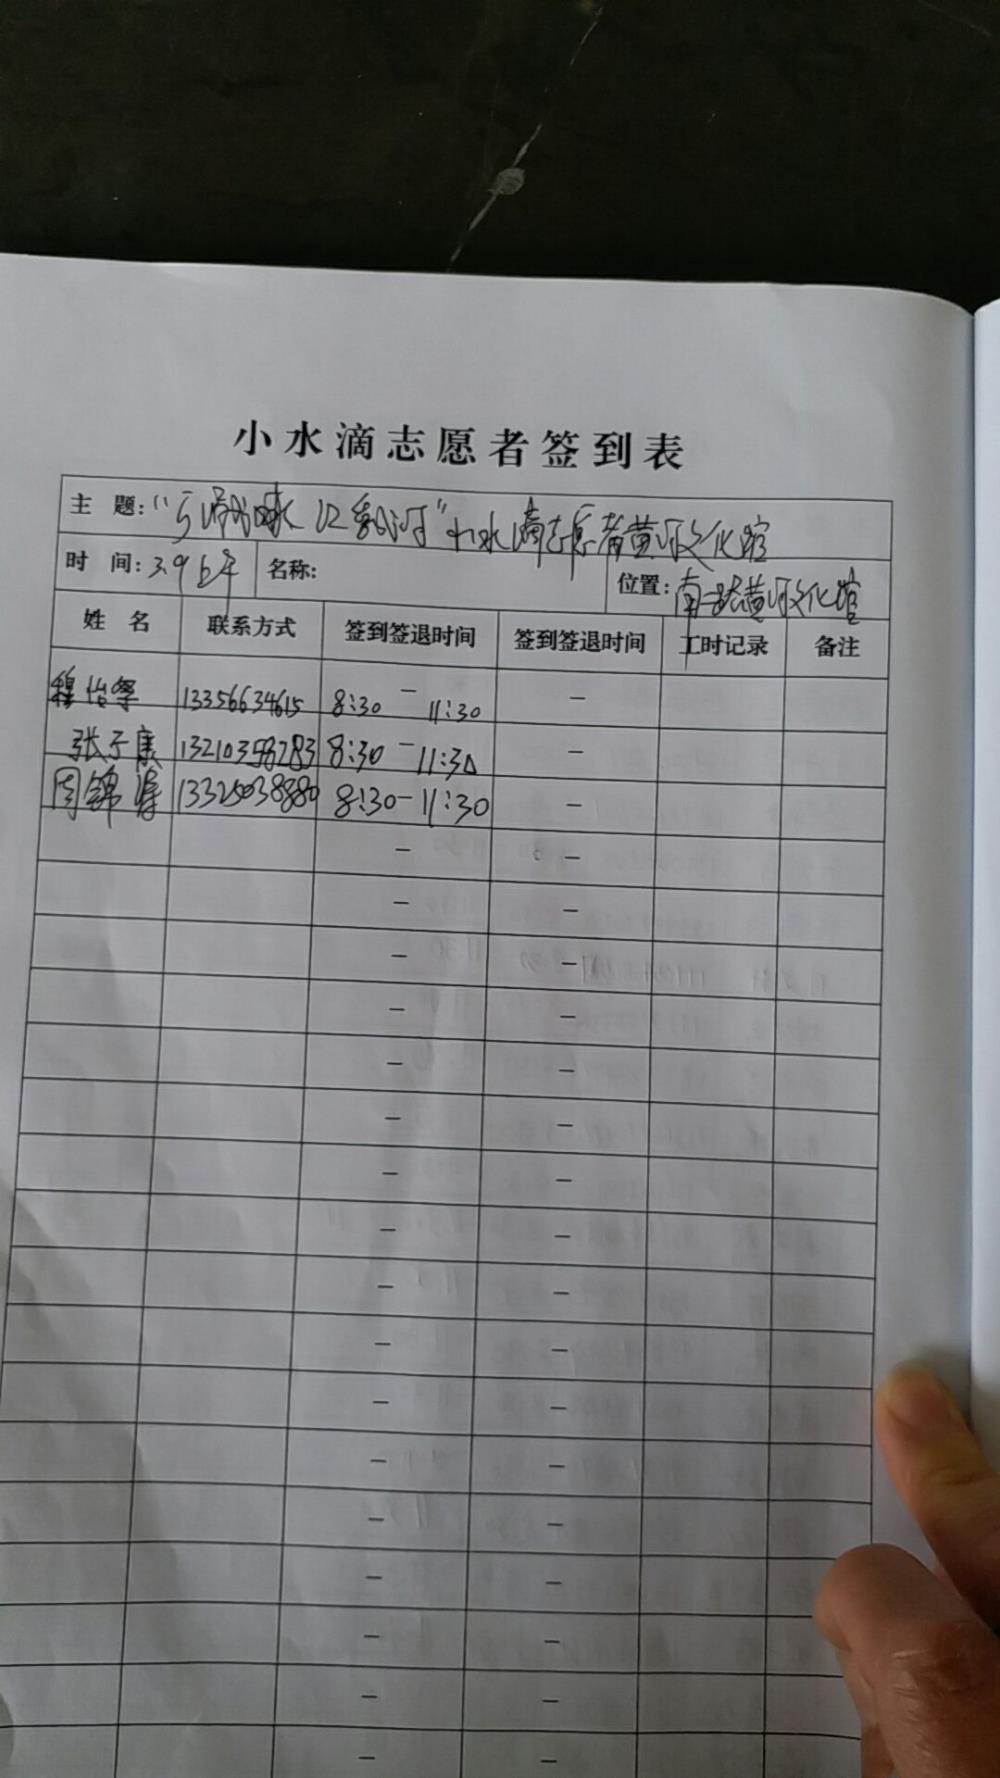 小水滴志愿者签到表
主 题: 小水滴志愿者黄河文化馆
时 间: 3.9上午 名称: 位置: 黄河文化馆
姓 名 联系方式 签到签退时间 签到签退时间 工时记录 备注
穆怡 13356634615 8:30 - 11:30 -
张子康 13210358283 8:30 - 11:30 -
周锦涛 13325038880 8:30 - 11:30 -